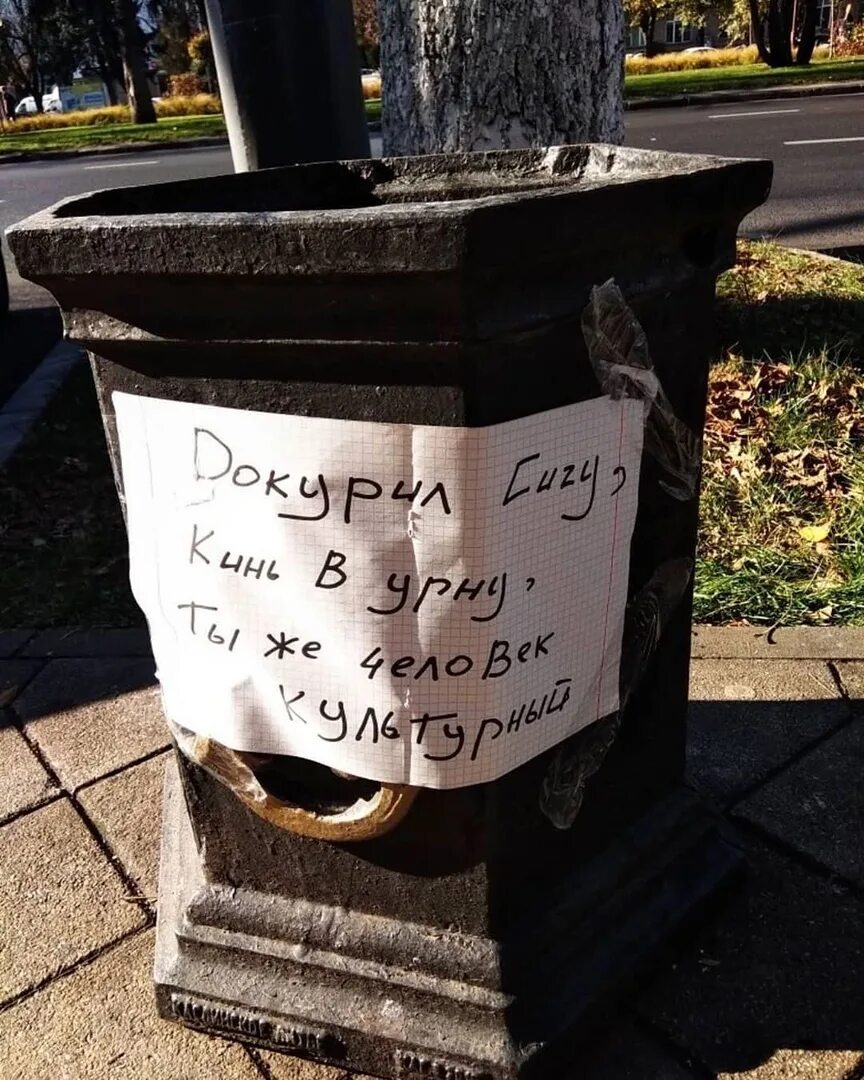 Докурил Сигу,
Кинь В урну,
Ты же человек
культурный